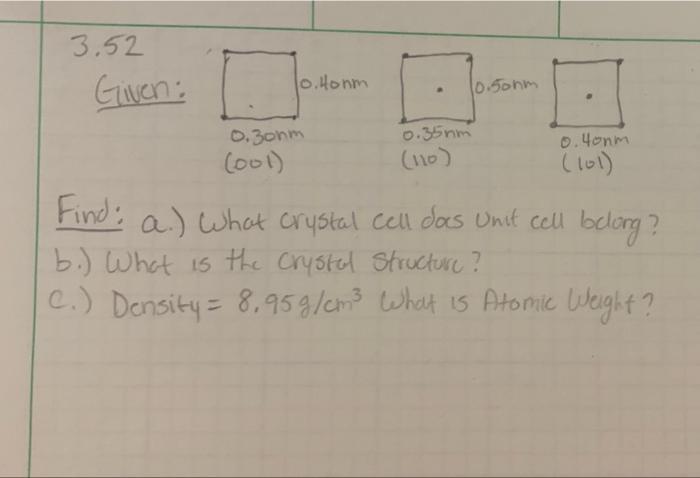 3.52
Given:
0.40nm
0.50nm
0.30nm
0.35nm
0.40nm
(001)
(110)
(101)
Find: a.) What crystal cell does unit cell belong?
b.) What is the crystal structure?
c.) Density = 8.95g/cm³ What is Atomic Weight?